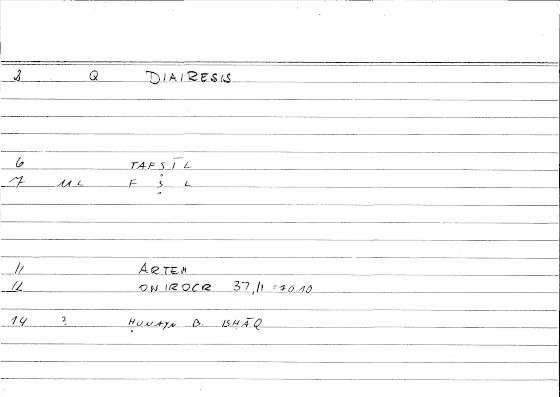 3 Q DIAIRESIS
6 TAFṢĪL
7 ML F Ṣ L
11 ARTEM
12 ONIROCR 37,11 = 70.10
14 ? ḤUNAYN B. ISHĀQ